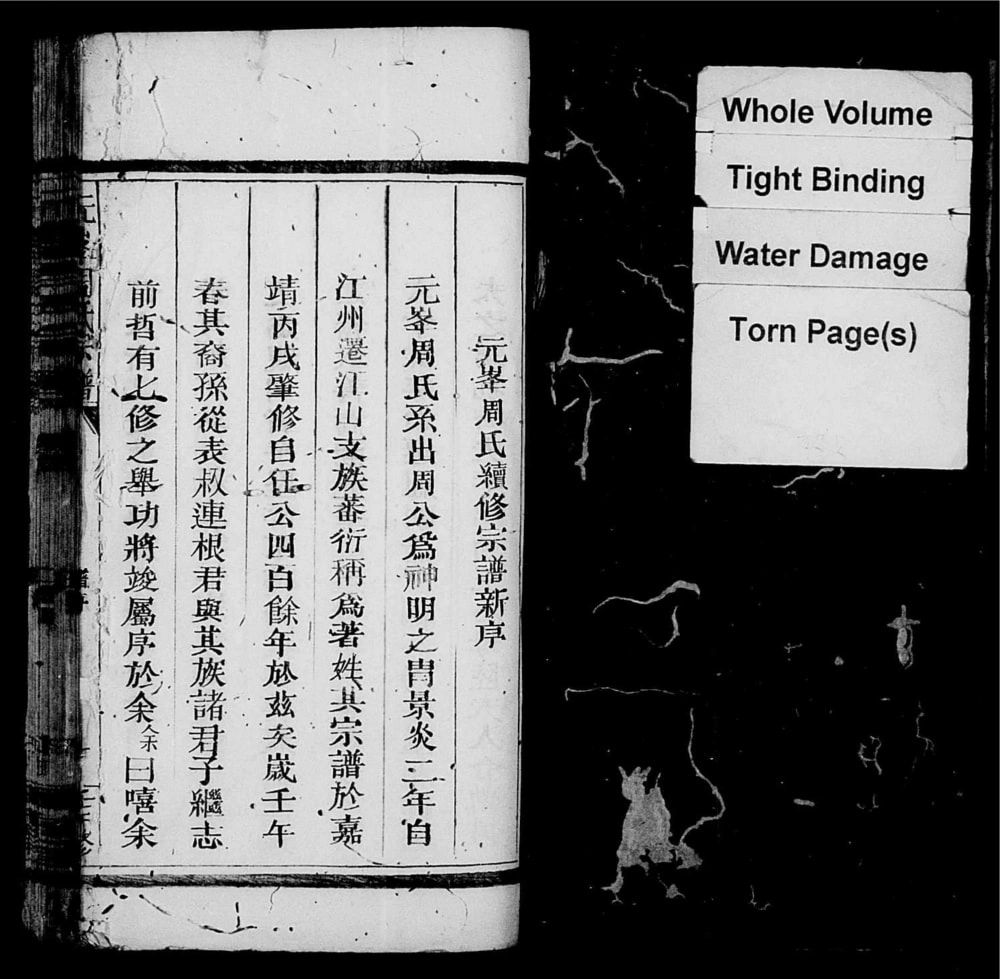 元峯周氏續修宗譜新序
元峯周氏系出周公爲神明之冑景炎二年自
江州遷江山支族蕃衍稱爲著姓其宗譜於嘉
靖丙戌肇修自任公四百餘年於茲矣歲壬午
春其裔孫從表叔連根君與其族諸君子繼志
前哲有七修之舉功將竣屬序於余余曰嘻余
Whole Volume
Tight Binding
Water Damage
Torn Page(s)